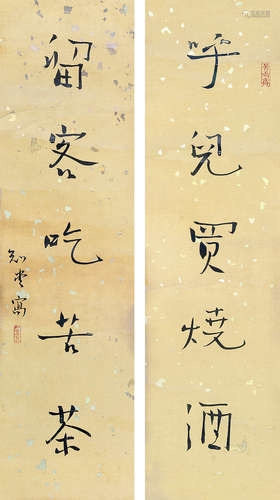 呼兒買燒酒
留客吃苦茶
知堂寫